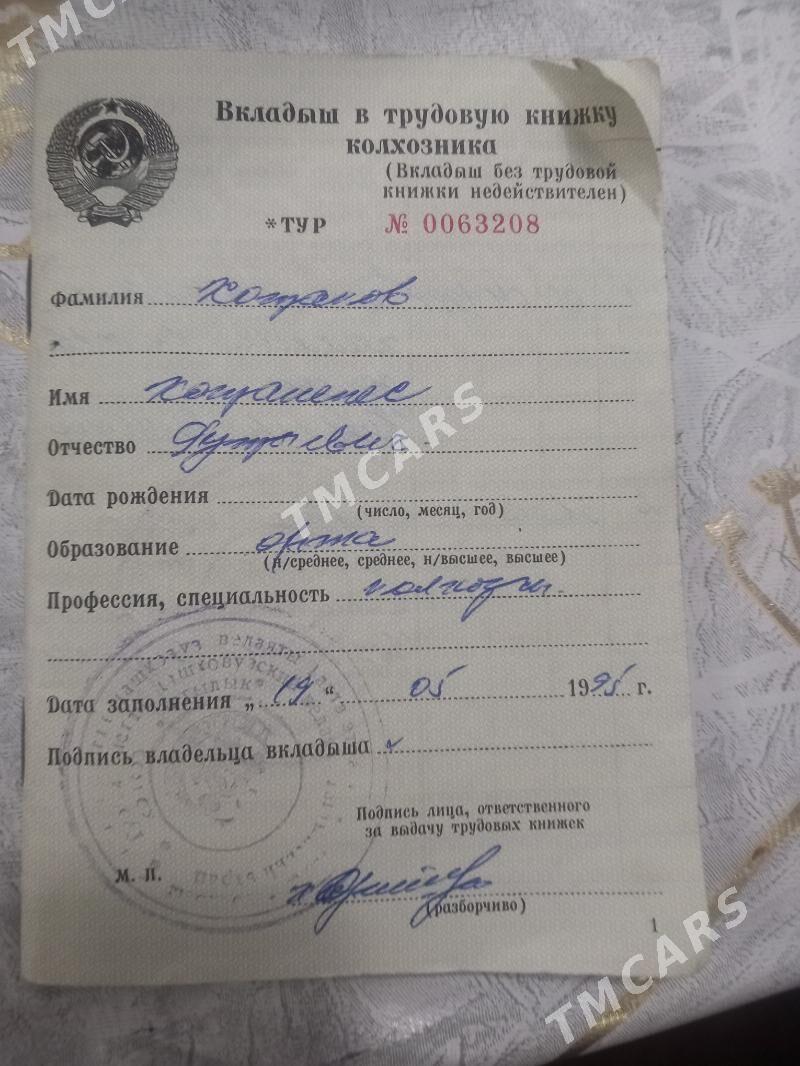 TMCARS
Вкладыш в трудовую книжку
колхозника
(Вкладыш без трудовой
книжки недействителен)
*ТУР № 0063208
Фамилия
Имя
Отчество
TMCARS
Дата рождения
(число, месяц, год)
Образование орта
(н/среднее, среднее, н/высшее, высшее)
Профессия, специальность
Дата заполнения „ 19 “ 05 1995 г.
Подпись владельца вкладыша
Подпись лица, ответственного
за выдачу трудовых книжек
М. П.
(разборчиво)
1
TMCARS